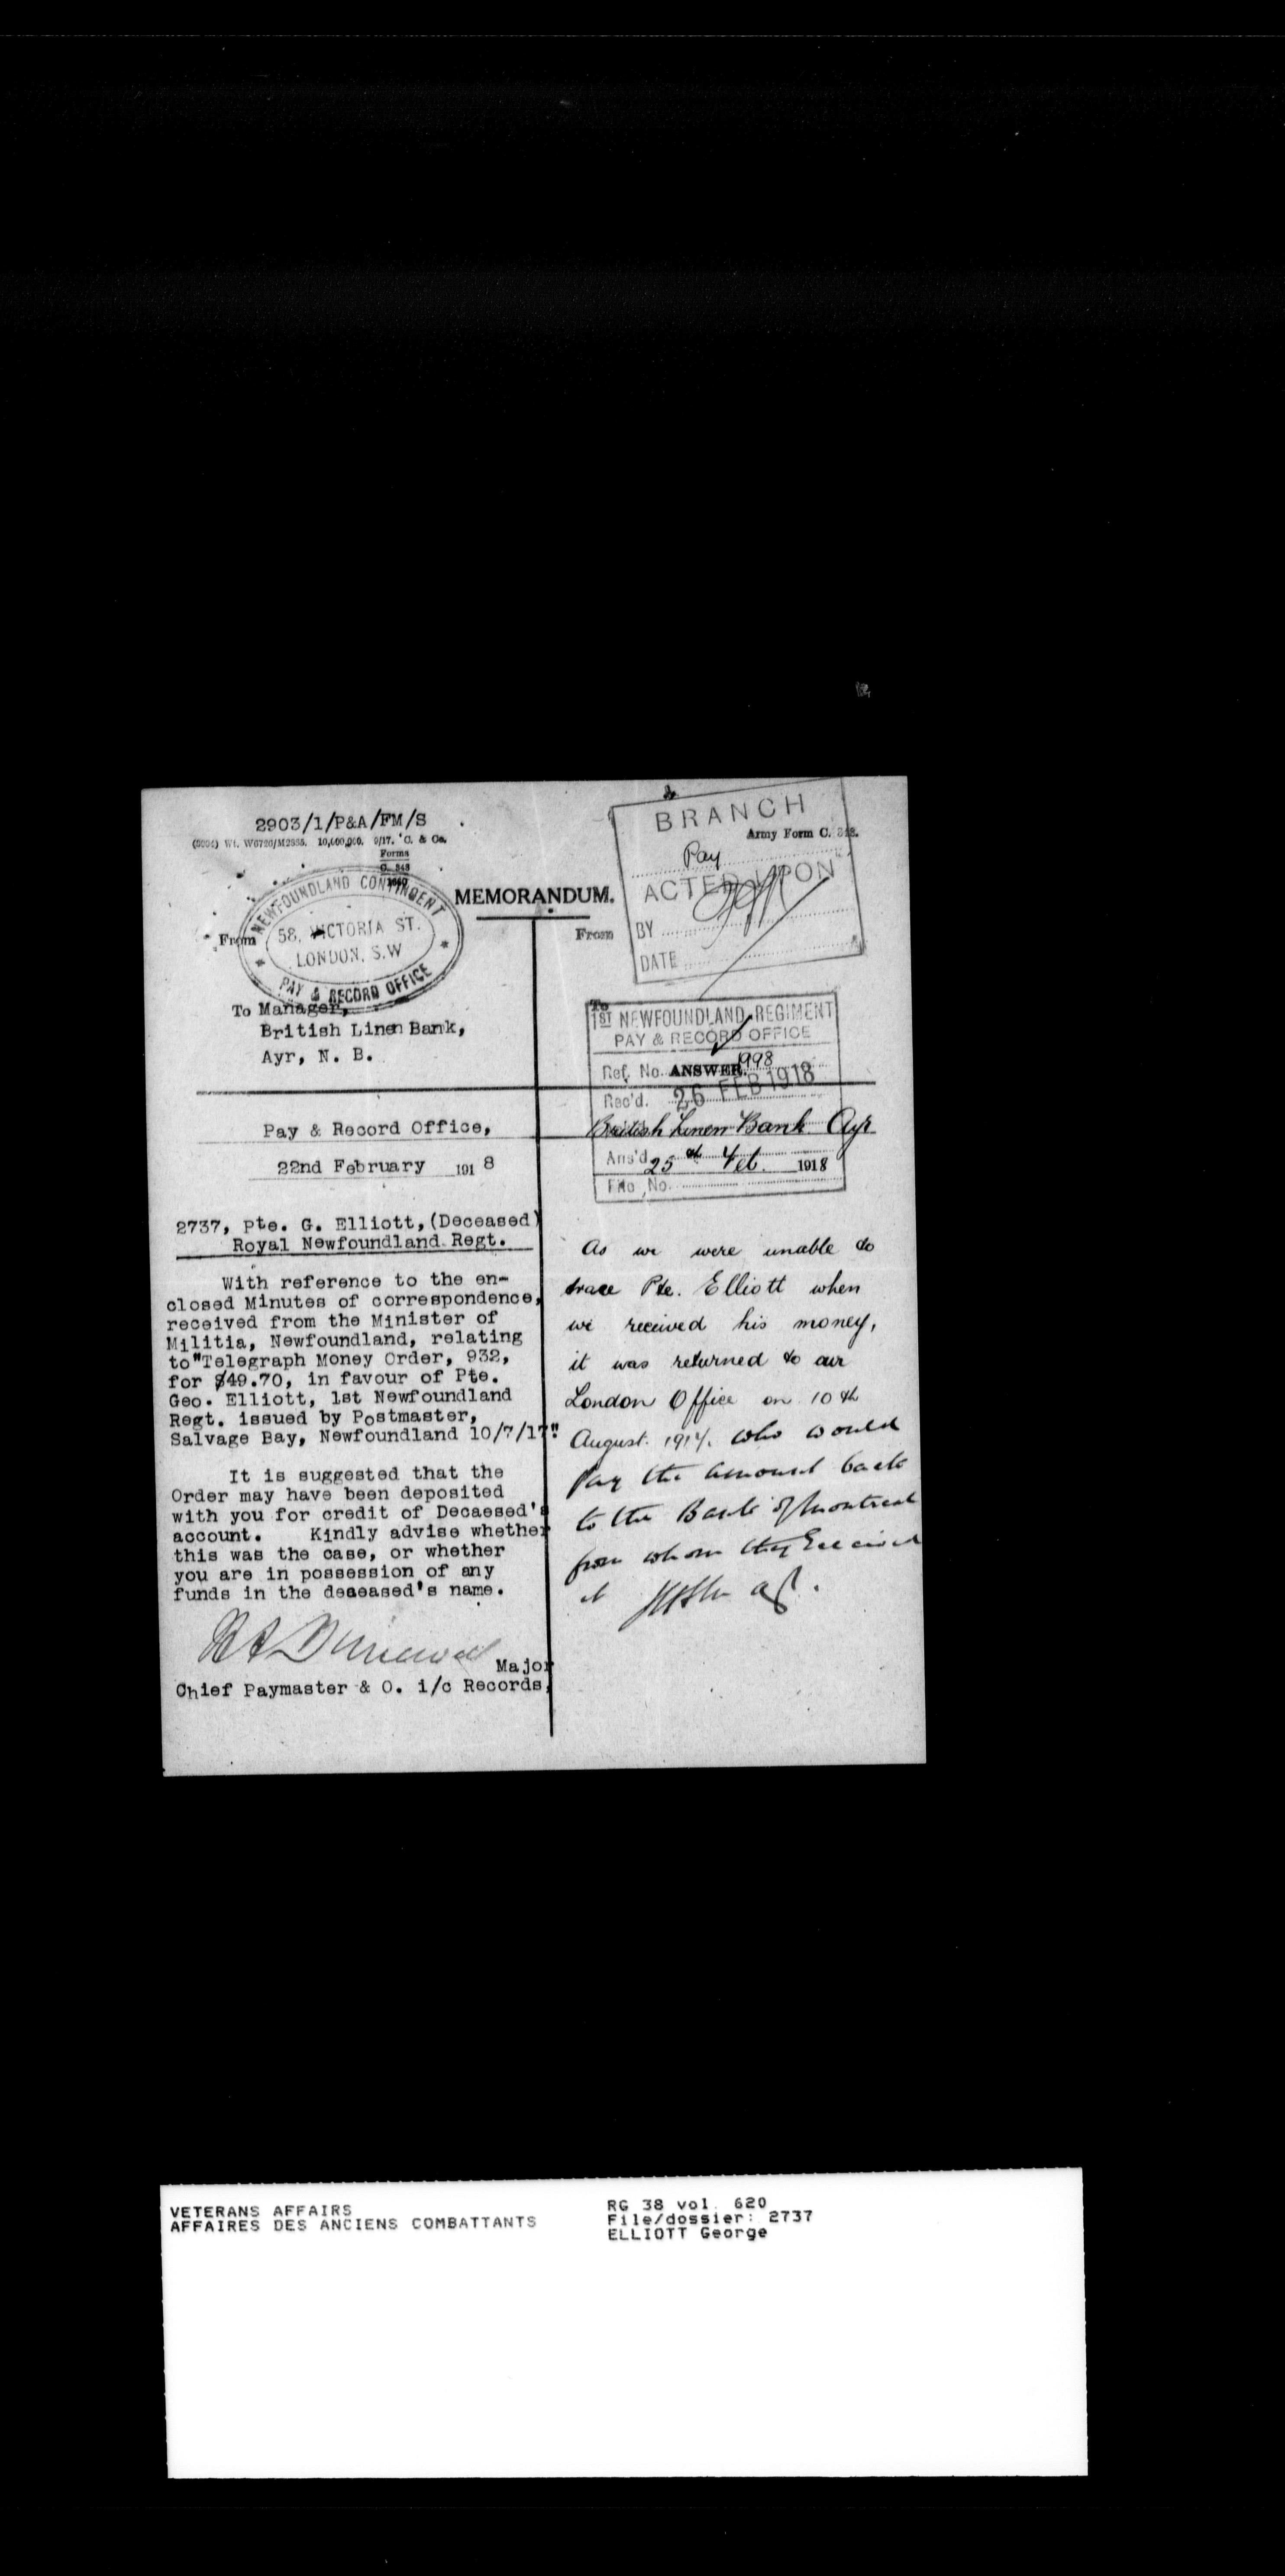 2903/1/P&A/FM/S
10,000,000. 9/17. C. & Co.
Forms
C. 348
MEMORANDUM.
From
NEWFOUNDLAND CONTINGENT
58, VICTORIA ST.
LONDON, S.W
PAY & RECORD OFFICE
To Manager,
British Linen Bank,
Ayr, N. B.
Pay & Record Office,
22nd February 1918
2737, Pte. G. Elliott, (Deceased)
Royal Newfoundland Regt.
With reference to the en-
closed Minutes of correspondence,
received from the Minister of
Militia, Newfoundland, relating
to "Telegraph Money Order, 932,
for $49.70, in favour of Pte.
Geo. Elliott, 1st Newfoundland
Regt. issued by Postmaster,
Salvage Bay, Newfoundland 10/7/17"
It is suggested that the
Order may have been deposited
with you for credit of Decaesed's
account. Kindly advise whether
this was the case, or whether
you are in possession of any
funds in the deceased's name.
Major
Chief Paymaster & O. i/c Records,
BRANCH
Army Form C. 348.
Pay
ACTED UPON
BY
DATE
From
To
1ST NEWFOUNDLAND REGIMENT
PAY & RECORD OFFICE
Ref. No. ANSWER. 1998
Rec'd. 26 FEB 1918
British Linen Bank Ayr
Ans'd 25th Feb. 1918
File No.
As we were unable to
trace Pte. Elliott when
we received his money,
it was returned to our
London Office on 10th
August 1917. who would
pay the amount back
to the Bank of Montreal
from whom they received
it
VETERANS AFFAIRS
AFFAIRES DES ANCIENS COMBATTANTS
RG 38 vol. 620
File/dossier: 2737
ELLIOTT George